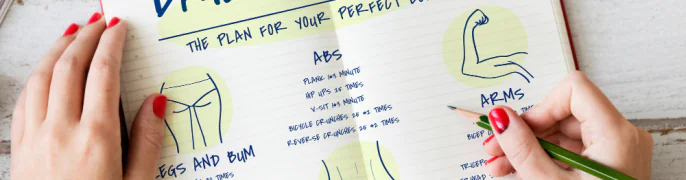 THE PLAN FOR YOUR PERFECT
ABS
PLANK 1x3 MINUTE
HIP UPS 25 TIMES
V-SIT 1x3 MINUTE
BICYCLE CRUNCHES 25 x2 TIMES
REVERSE CRUNCHES 25 x2 TIMES
ARMS
LEGS AND BUM
TIMES